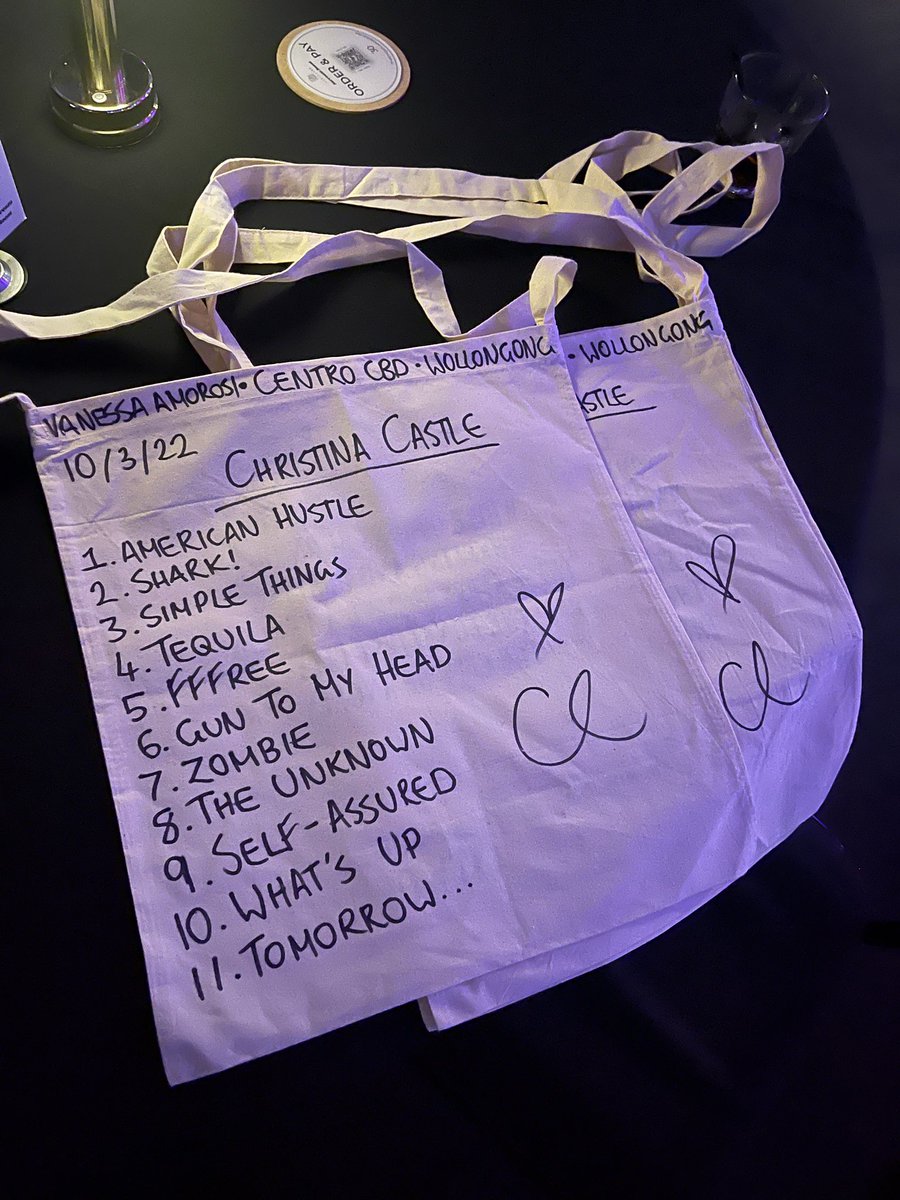 ORDER & PAY
30
VANESSA AMOROSI • CENTRO CBD • WOLLONGONG
10/3/22
CHRISTINA CASTLE
1. AMERICAN HUSTLE
2. SHARK!
3. SIMPLE THINGS
4. TEQUILA
5. FFFREE
6. GUN TO MY HEAD
7. ZOMBIE
8. THE UNKNOWN
9. SELF-ASSURED
10. WHAT'S UP
11. TOMORROW...
• WOLLONGONG
STLE